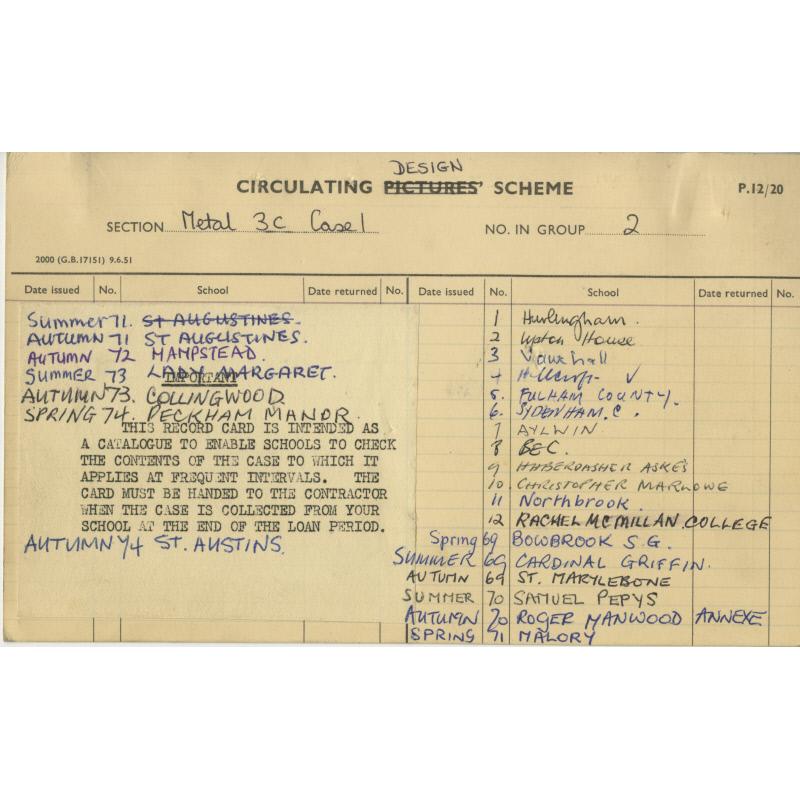 DESIGN
CIRCULATING PICTURES' SCHEME
P.12/20
SECTION Metal 3c Case 1
NO. IN GROUP 2
2000 (G.B.17151) 9.6.51
Date issued No. School Date returned No. Date issued No. School Date returned No.
Summer 71. ST AUGUSTINES.
AUTUMN 71 ST AUGUSTINES.
AUTUMN 72 HAMPSTEAD.
SUMMER 73 LADY MARGARET.
IMPORTANT
AUTUMN 73. COLLINGWOOD
SPRING 74. PECKHAM MANOR.
THIS RECORD CARD IS INTENDED AS
A CATALOGUE TO ENABLE SCHOOLS TO CHECK
THE CONTENTS OF THE CASE TO WHICH IT
APPLIES AT FREQUENT INTERVALS. THE
CARD MUST BE HANDED TO THE CONTRACTOR
WHEN THE CASE IS COLLECTED FROM YOUR
SCHOOL AT THE END OF THE LOAN PERIOD.
AUTUMN 74 ST. AUSTINS.
1 Hurlingham.
2 Upton House
3 Vauxhall
4 Hillcroft ✓
5. FULHAM COUNTY.
6. SYDENHAM. C.
7 AYLWIN
8 BEC.
9 HABERDASHER ASKES
10. CHRISTOPHER MARLOWE
11 Northbrook.
12 RACHEL MCMILLAN COLLEGE
Spring 69 BOWBROOK S.G.
SUMMER 69 CARDINAL GRIFFIN.
AUTUMN 69 ST. MARYLEBONE
SUMMER 70 SAMUEL PEPYS
AUTUMN 70 ROGER MANWOOD ANNEXE
SPRING 71 MALORY